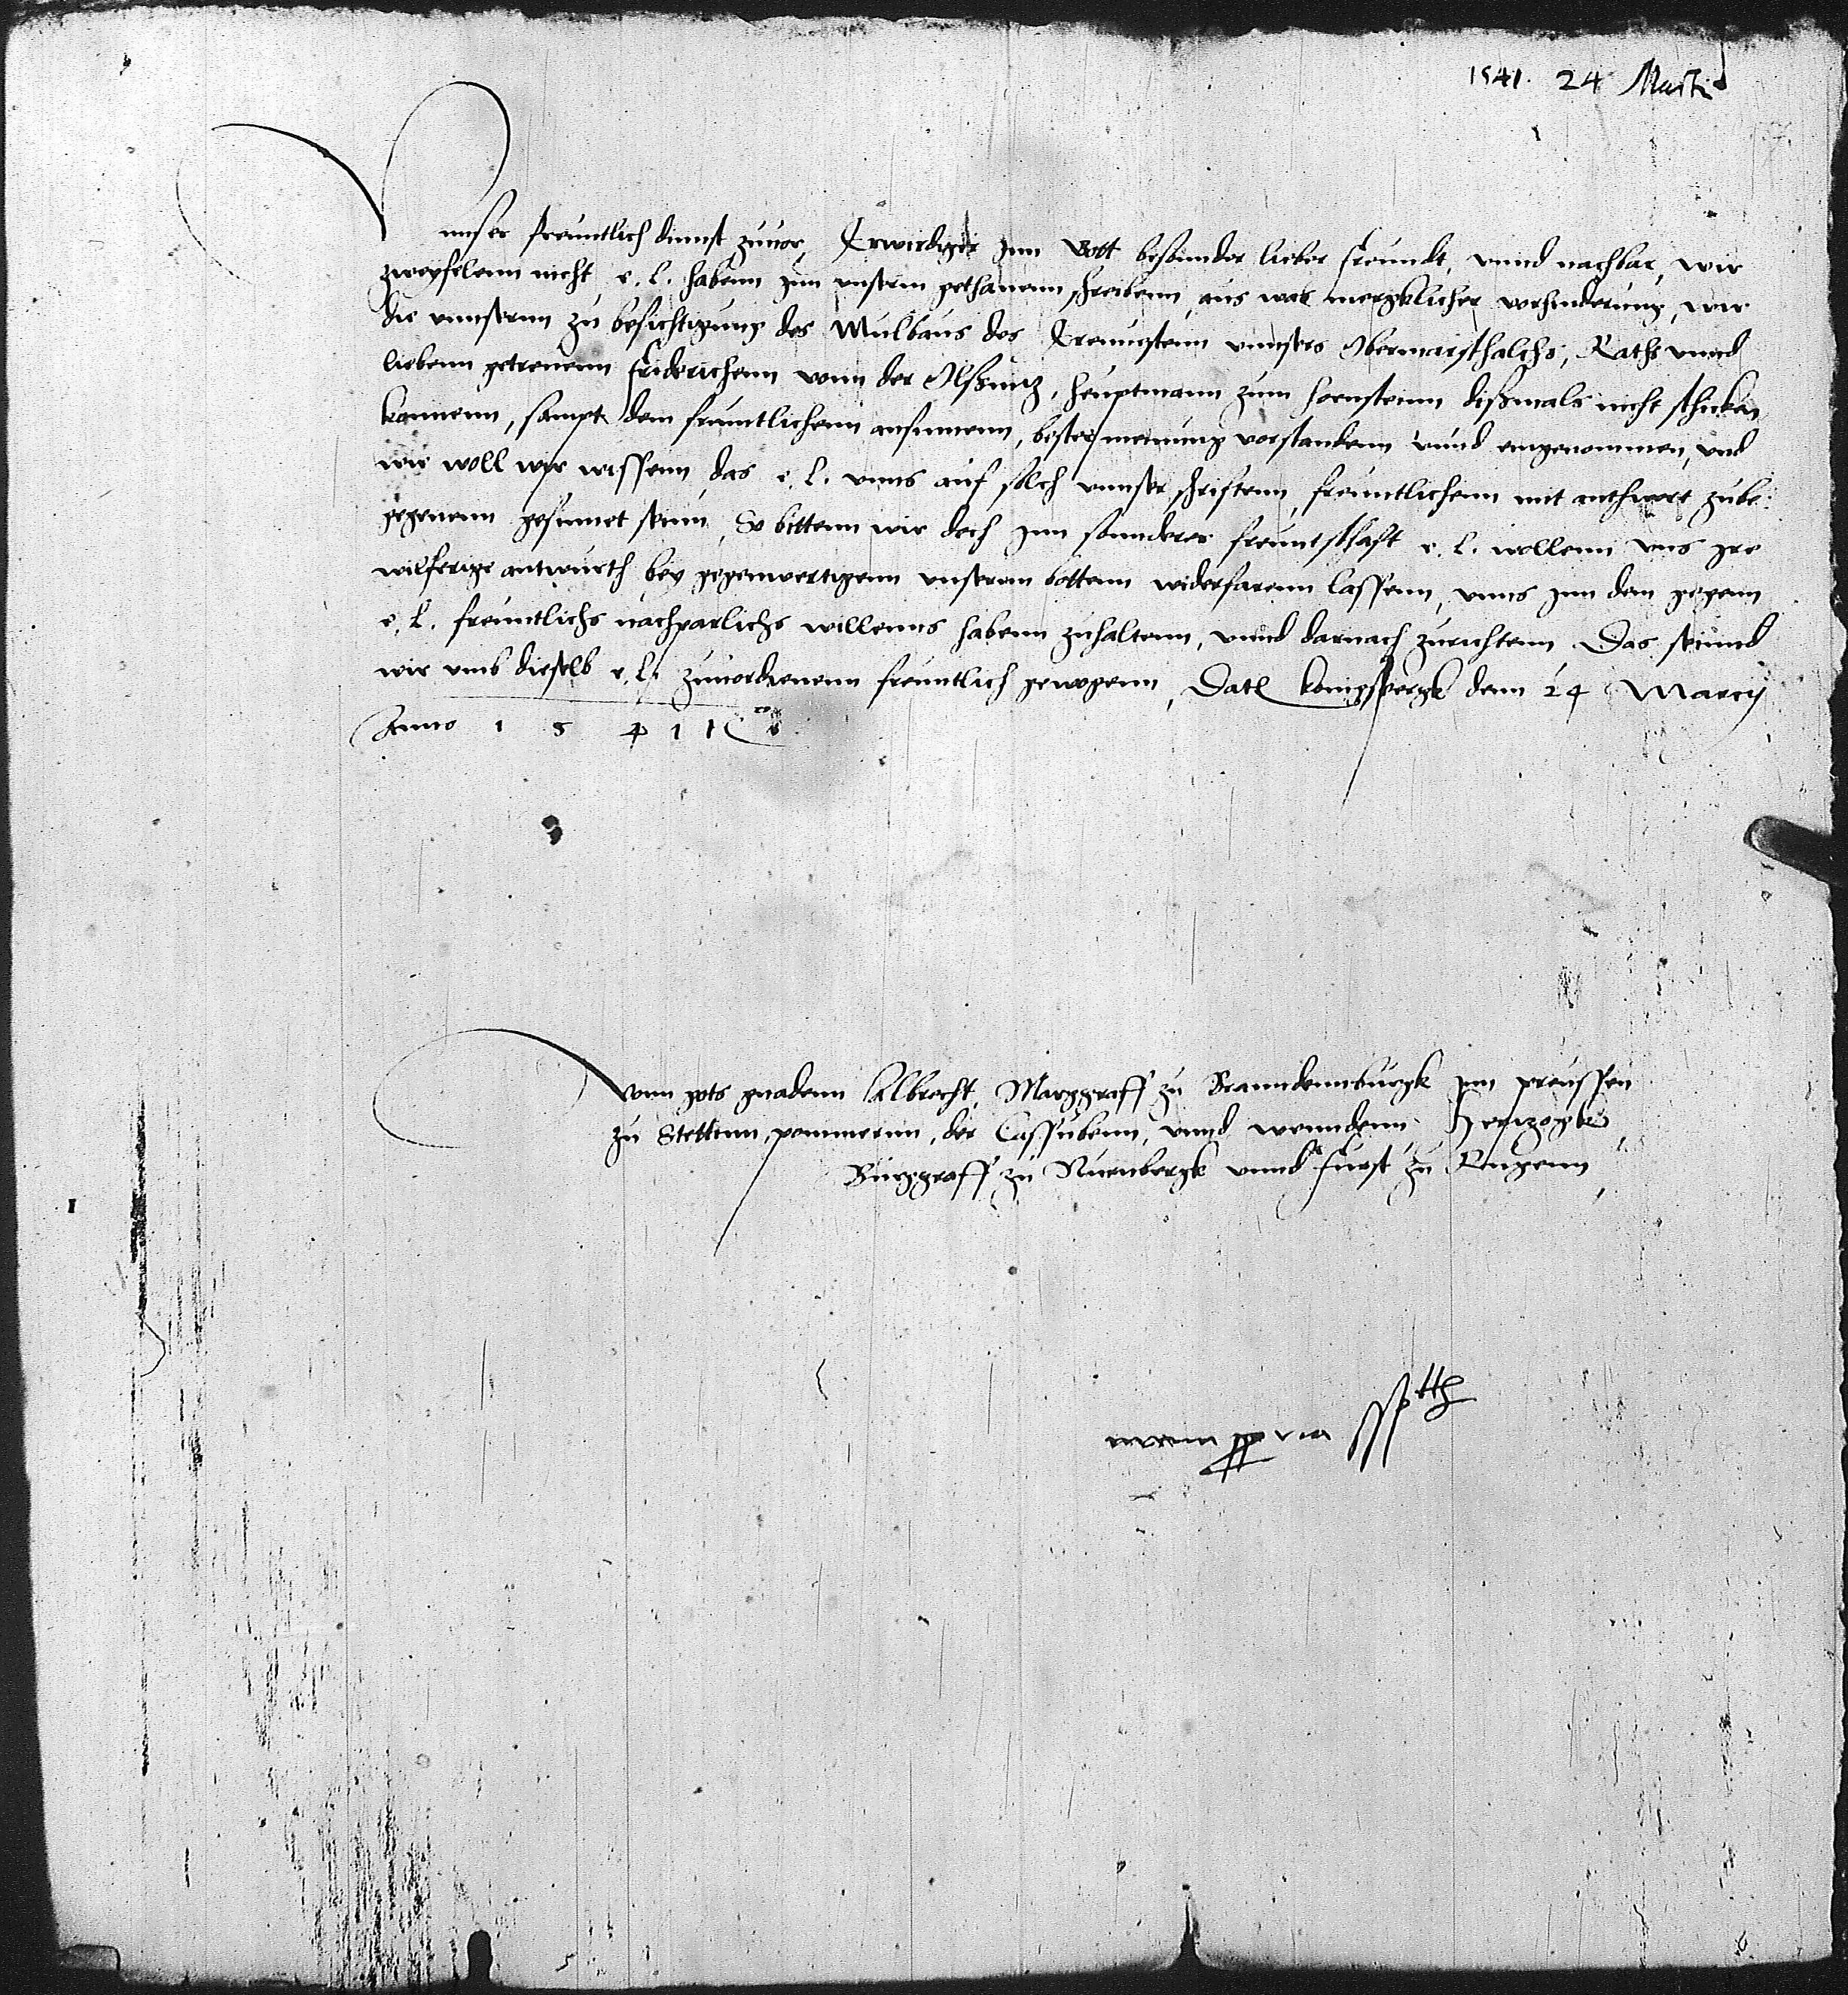 1541. 24 Martii
Vnnser freuntlich dinnst zuuor, Erwirdiger Inn Gott besonnder lieber freundt, vnnd nachbar, wir
zweyfelenn nicht e. l. habenn Inn vnserm gethanenn schreibenn, aus was mergklicher vorhinderung, wir
die vnnsernn zu besichtigung des Mulbaus des Erenuestenn vnnsers Obermarschalchs, Raths vnnd
liebenn getreuenn Friderichenn vonn der Olssnitz, heuptmann zum hoensteinn dißmals nicht schicken
konnenn, sampt dem freuntlichenn ansinnenn, bester meinung vorstandenn vnnd eingenommen, vnd
wie woll wir wissenn, das e. l. vnns auf solch vnnser schriftenn, freuntlichenn mit anthwort zube-
gegenenn gesinnet seinn, So bittenn wir doch Inn sonnderer freuntschaft e. l. wollenn vns Ire
wilferige antwurth bey gegenwertigenn vnserem bottenn widerfarenn lassenn, vnns Inn dem gegenn
e. l. freuntlichs nachparlichs willenns habenn zuhaltenn, vnnd darnach zurichtenn Das seinnd
wir vmb dieselb e. l. zuuordienenn freuntlich gewogenn, Datum konigspergk denn 24 Marcij
Anno 1541
Vonn gots gnadenn Albrecht, Marggraff zu Branndennburgk Inn preussen
zu Stettinn, pommernn, der Cassubenn, vnnd wenndenn Hertzogk
Burggraff zu Nurnbergk vnnd furst zu Rugenn
manu propria sst